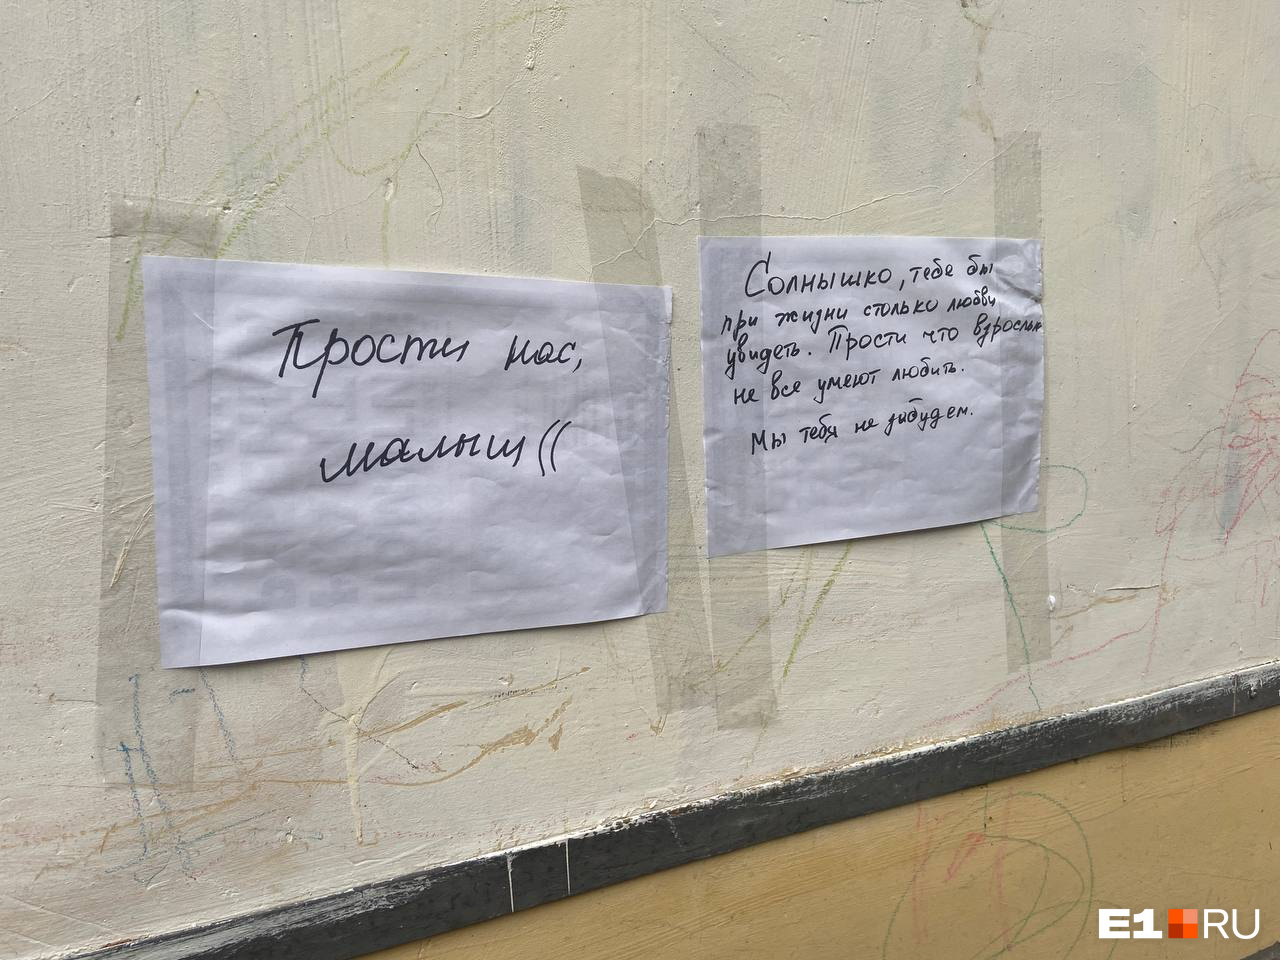 Прости нас,
малыш((
Солнышко, тебе бы
при жизни столько любви
увидеть. Прости что взрослые
не все умеют любить.
Мы тебя не забудем.
E1.RU